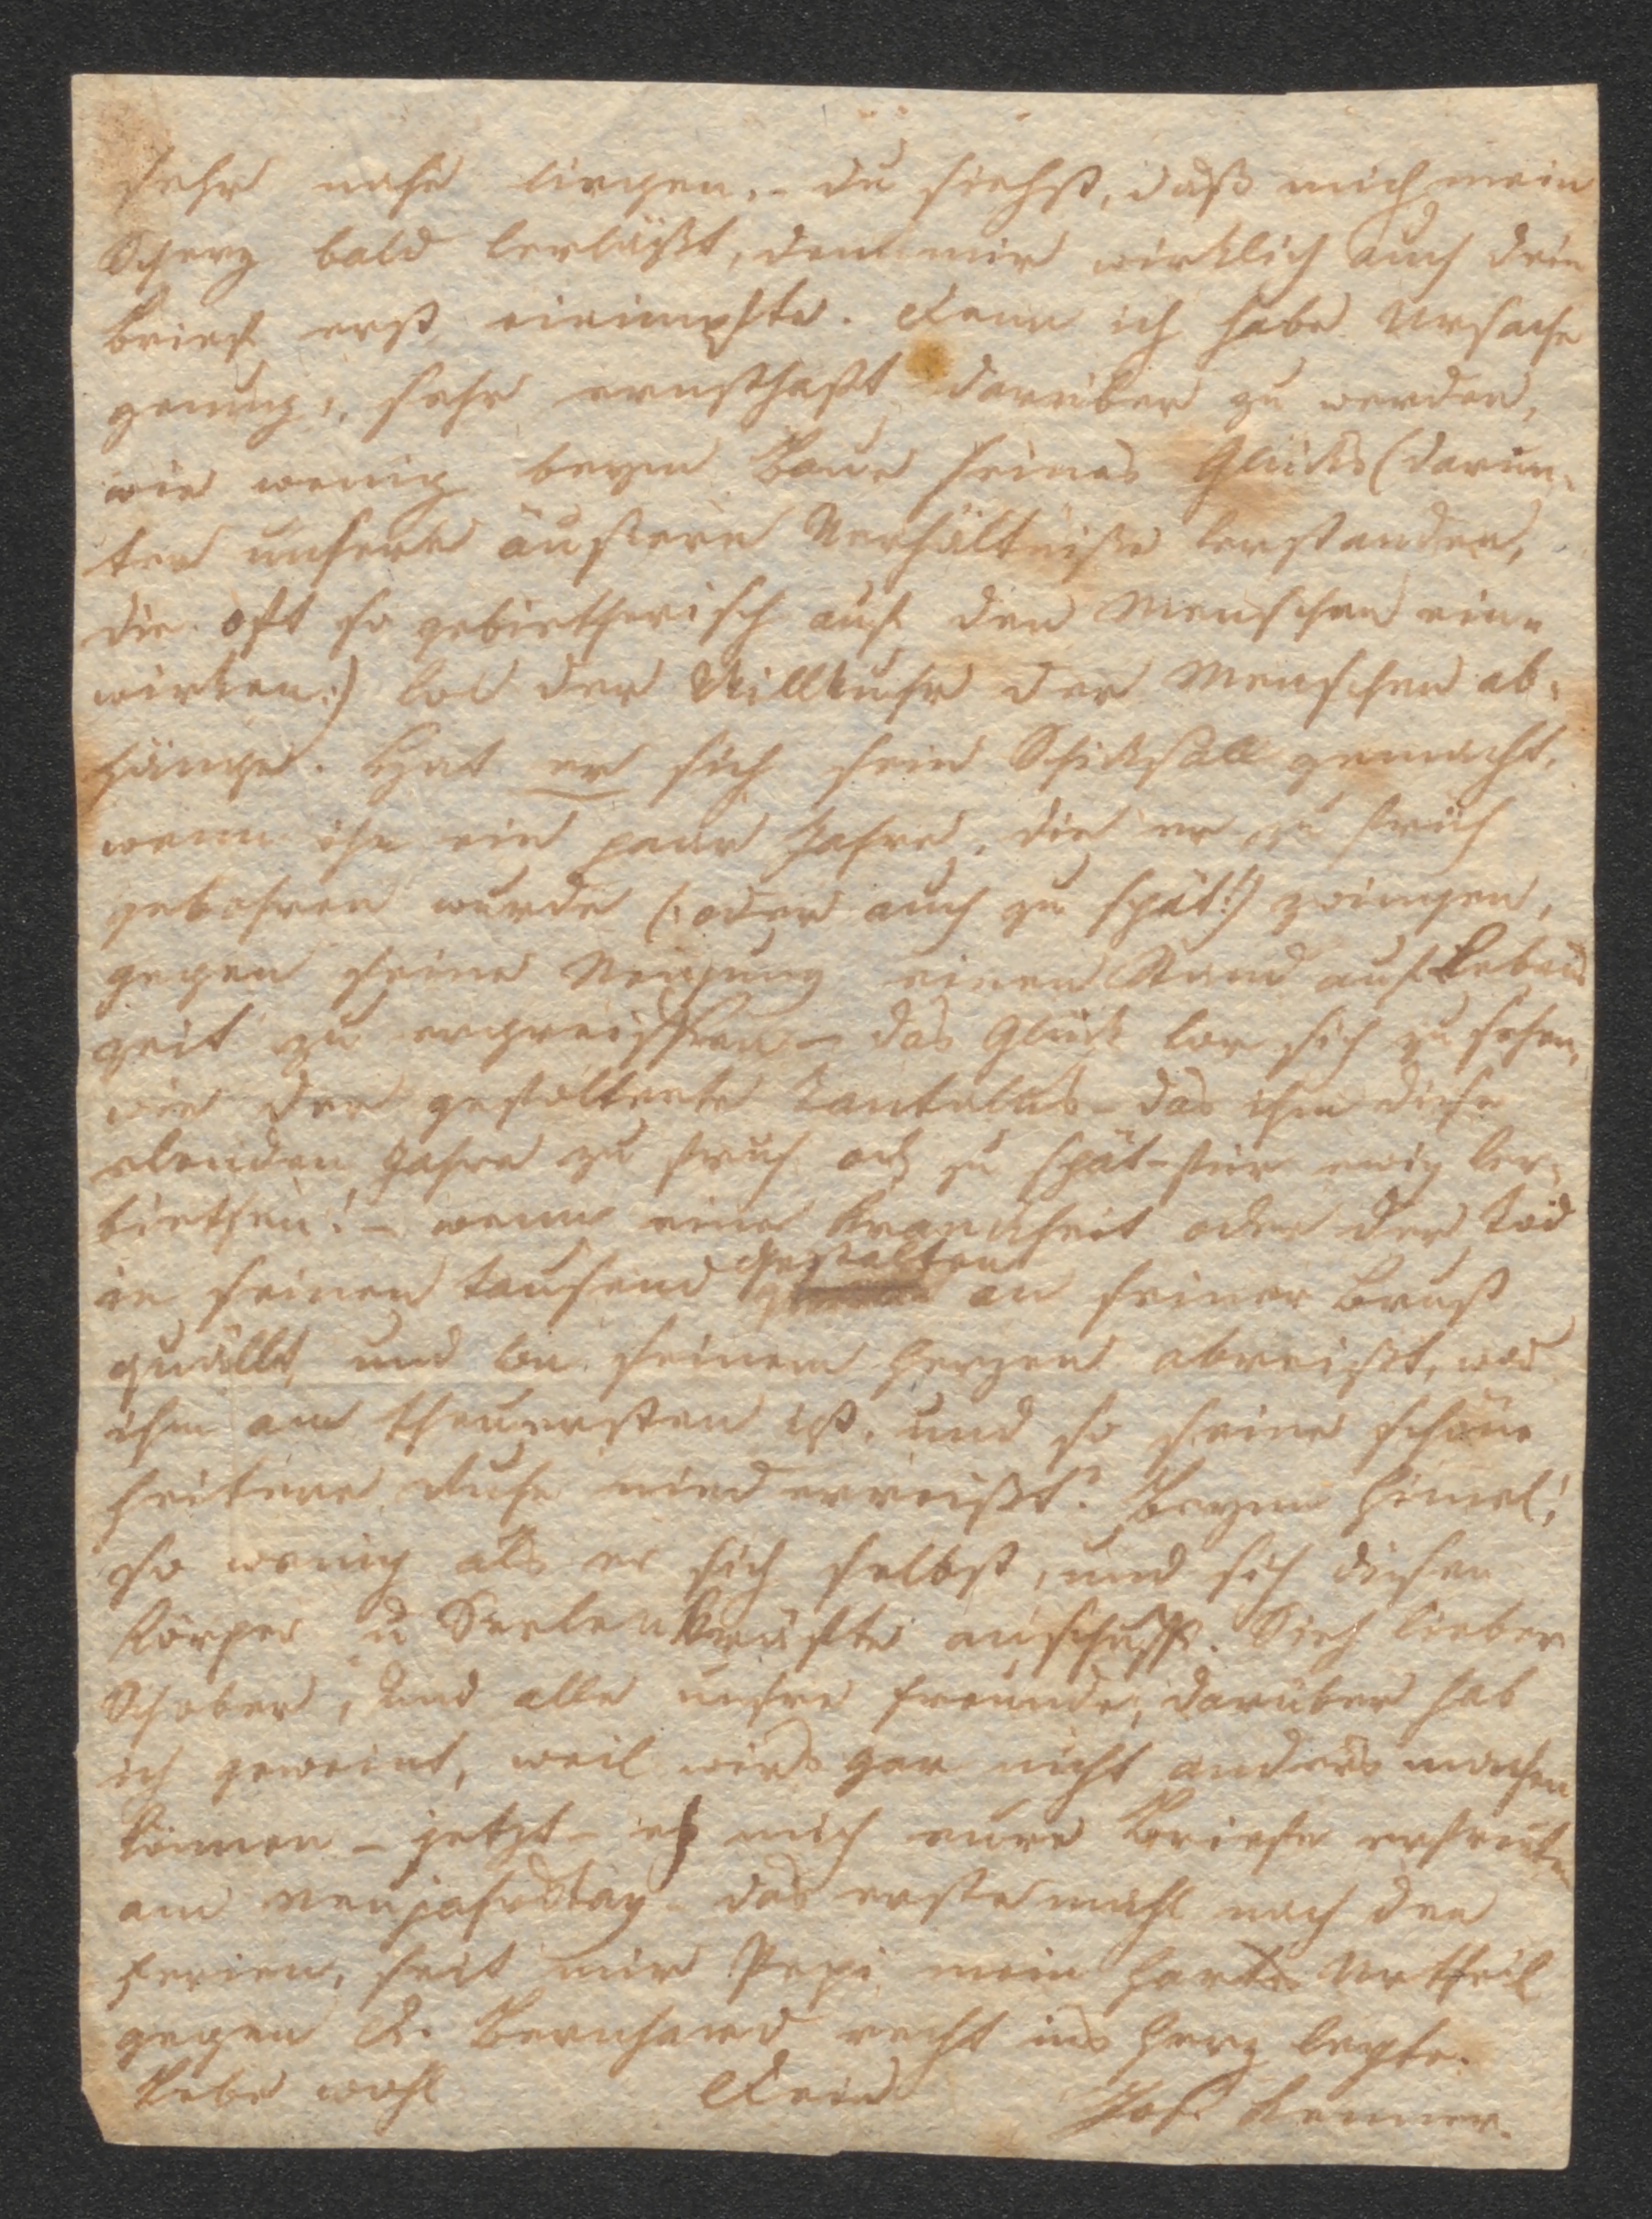 sehr nahe liegen. – du siehst, daß mich mein
Scherz bald verläßt, den mir wirklich auch dein
Brief erst einimpfte. Denn ich habe Ursache
genung, sehr ernsthaft darüber zu werden,
wie wenig beym Baue seines Glücks (darun-
ter unsere äußere Verhältniße verstanden,
die oft so gebietherisch auf den Menschen ein-
wirken:) von der Willkuhr der Menschen ab-
hänge. Hat er sich sein Schicksall gemacht,
wenn ihn ein paar Jahre, die er zu früh
gebohren wurde (: oder auch zu spät :) zwingen,
gegen seine Neigung einen Stand auf Lebens
zeit zu ergreiffen – das Glück vor sich zu sehen,
wie der gefolterte Tantalus – das ihm diese
elenden Jahre zu früh od. zu spät – für ewig ver-
biethen! – wenn eine Krankheit oder der Tod
in seinen tausend Gestalten an seiner Brust
quällt, und von seinem Herzen abreißt, was
ihm am theuersten ist, und so seine schöne
heitere Ruhe niederreißt? Beym Himel!
so wenig als er sich selbst, und sich diesen
Körper u Seelenkräfte anschuff. Sieh lieber
Schober, und alle unsre Freunde, darüber hab
ich geweint, weil wirs gar nicht anders machen
können – jetzt – als mich eure Briefe erfreuten
am Neujahrstag – das erste mahl nach den
Ferien, seit mir Pepi mein hartes Urtheil
gegen D. Bernhard recht ins Herz legte.
Lebe wohl Dein Jos. Kenner.